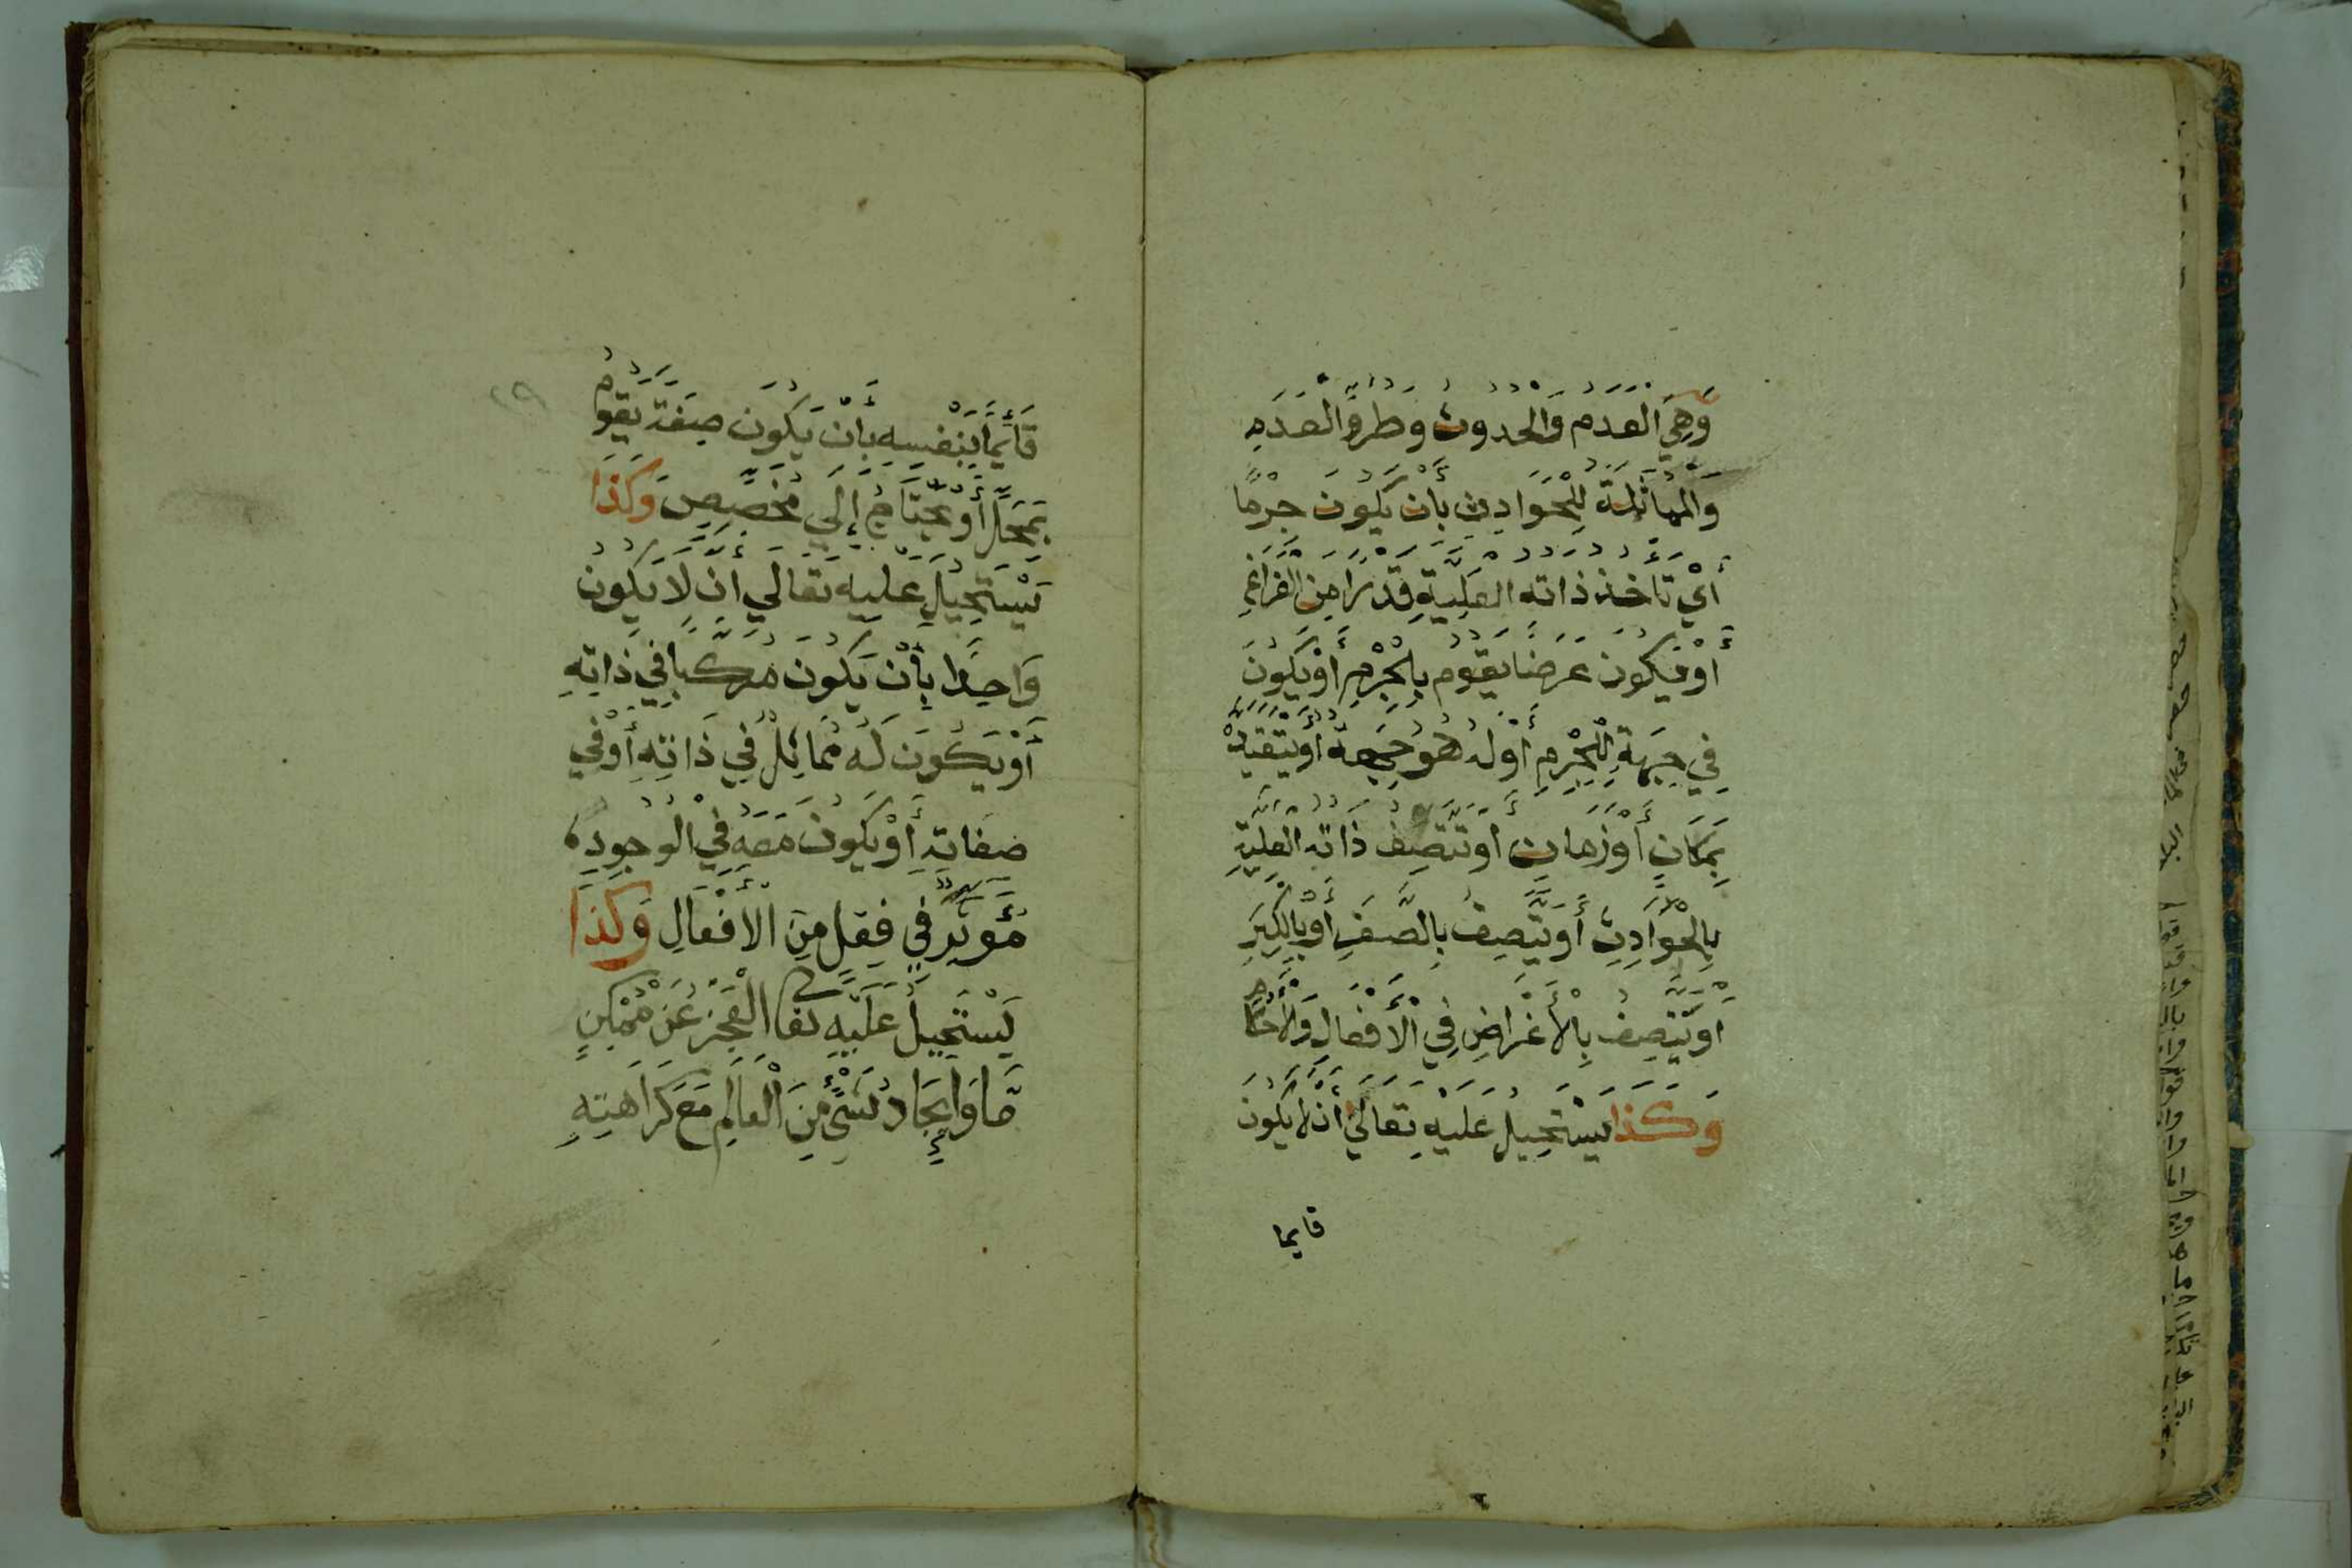 وَهِيَ الْعَدَم وَالْحُدوث وَطرُوُّ الْعَدَمِ
وَالْمُمَاثَلَةُ لِلْحَوَادِثِ بِأَنْ يَكُونَ جِرْمًا
أَيْ تَأْخُذ ذاته الْعَلِيَّةِ قَدْرًا مِنَ الْفَرَاغِ
أَوْ فيكون عَرَضًا يَقُوم بِالْجِرْمِ أَوْ يَكُونَ
فِي جِهَةِ لِلْجِرْمِ أَوْ لَهُ هُو جِهَة أَوْ يَتَقَيَّد
بِمَكَانٍ أَوْ زَمَانٍ أَوْ تَتَّصِفَ ذَاتُه الْعَلِيَّةِ
بِالْحَوَادِثِ أَوْ يَتَّصِفُ بِالصِّغَرِ أَوْ بِالْكِبَرِ
أَوْ يَتَّصِفُ بِالْأَغْرَاضِ فِي الْأَفْعَالِ وَالْأَحْكَا
وَكَذَا يَسْتَحِيلُ عَلَيْهِ تَعَالَى أَنْ لَا يَكُونَ
قايما
قَائِمًا بِنَفْسِهِ بِأَنْ يَكُونَ صِفَةً يَقُومُ
بِمَحَلٍّ أَوْ يَحْتَاجُ إِلَي مُخَصِّصٍ وَكَذَا
يَسْتَحِيلُ عَلَيْهِ تَعَالَي أَنْ لَا يَكُونُ
وَاحِدًا بِأَنْ يَكُونَ مُرَكَّبًا فِي ذَاتِهِ
أَوْ يَكُونَ لَهُ مُمَاثِلُ فِي ذَاتِهِ أَوْ فِي
صِفَاتِهِ أَوْ يَكُونُ مَعَهُ فِي الْوُجُودِ
مُؤَثِّرٌ فِي فِعْلٍ مِنَ الْأَفْعَالِ وَكَذَا
يَسْتَحِيلُ عَلَيْهِ تعا الْعَجْزُ عَنْ مُمْكِنٍ
مَّا وَإِيجَادُ شَيْءٍ مِنَ الْعَالَمِ مَعَ كَرَاهَتِهِ